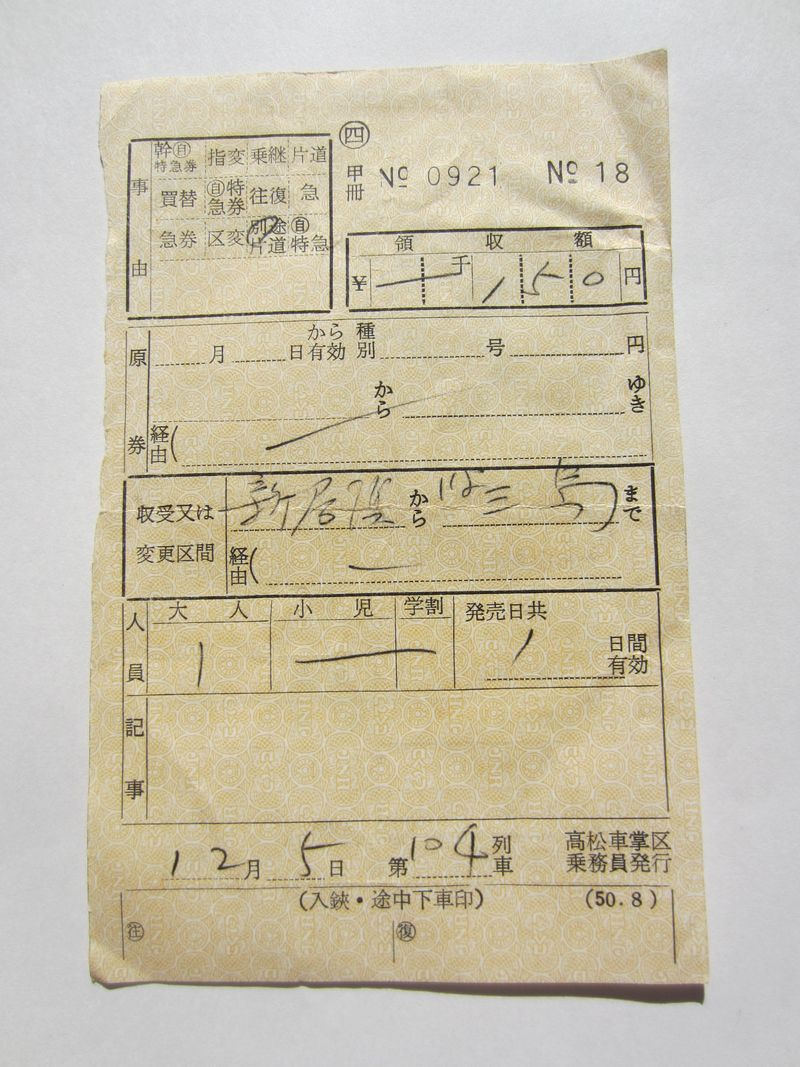 ㊃
甲冊 № 0921 № 18
事由
幹㊀特急券 指変 乗継 片道
買替 自特急券 往復 急
急券 区変 別途片道 自特急
領収額
¥ 千 150 円
原券
月 日 から有効 種別 号 円
から ゆき
経由(
収受又は変更区間
新居浜 から 伊三島 まで
経由(
人員
大人 小児 学割 発売日共
1 1 日間有効
記事
12月 5日 第104列車 高松車掌区乗務員発行
(入鋏・途中下車印) (50.8)
往 復